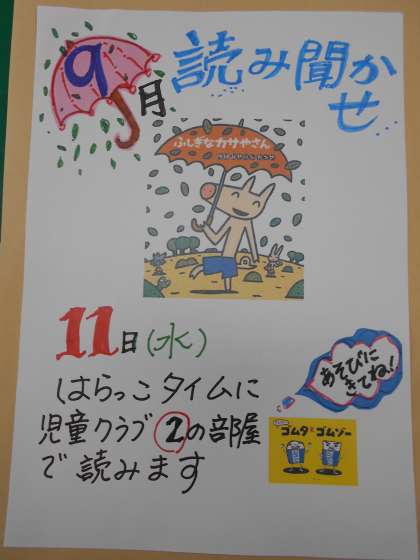 9月 読み聞かせ
ふしぎなカサやさん
11日(水)
はらっこタイムに
児童クラブ②の部屋
で読みます
あそびに
きてね!
ゴムタとゴムゾー